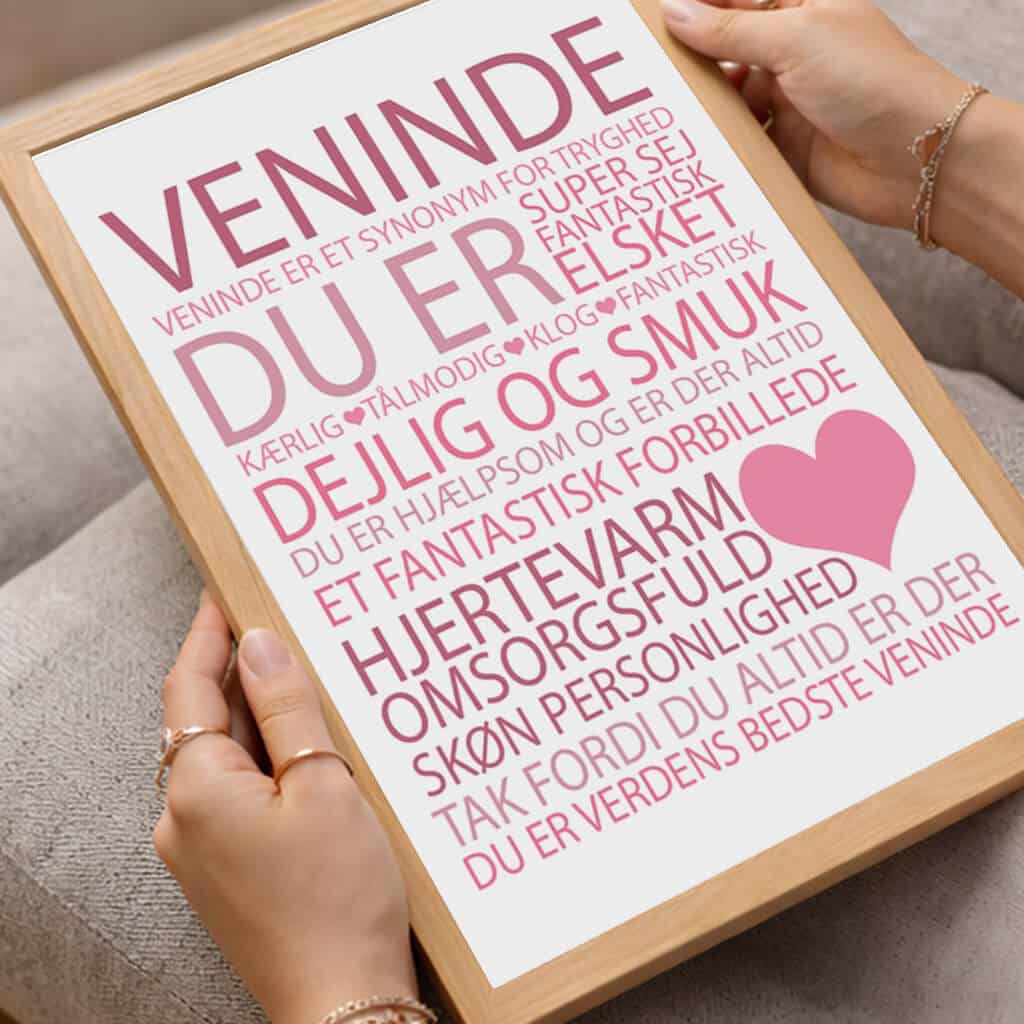 VENINDE
VENINDE ER ET SYNONYM FOR TRYGHED
DU ER
SUPER SEJ
FANTASTISK
ELSKET
KÆRLIG♥TÅLMODIG♥KLOG♥FANTASTISK
DEJLIG OG SMUK
DU ER HJÆLPSOM OG ER DER ALTID
ET FANTASTISK FORBILLEDE
HJERTEVARM
OMSORGSFULD
SKØN PERSONLIGHED
TAK FORDI DU ALTID ER DER
DU ER VERDENS BEDSTE VENINDE